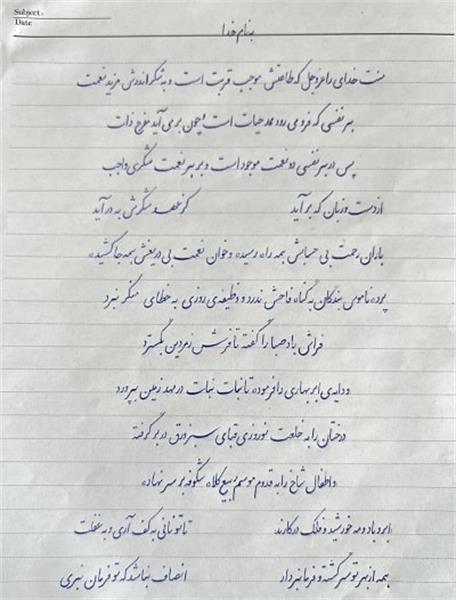 Subject:
Date
بنام خدا
منت خدای را عزوجل که طاعتش موجب قربت است و به شکر اندرش مزید نعمت
هر نفسی که فرو می رود ممد حیات است و چون بر می آید مفرح ذات
پس در هر نفسی دو نعمت موجود است و بر هر نعمت شکری واجب
از دست و زبان که برآید کز عهده شکرش به در آید
باران رحمت بی حسابش همه را رسیده و خوان نعمت بی دریغش همه جا کشیده
پرده ناموس بندگان به گناه فاحش ندرد و وظیفه ی روزی به خطای منکر نبرد
فراش باد صبا را گفته تا فرش زمردین بگسترد
و دایه ی ابر بهاری را فرموده تا نبات نبات در مهد زمین بپرورد
درختان را به خلعت نوروزی قبای سبز ورق در بر گرفته
و اطفال شاخ را به قدوم موسم ربیع کلاه شکوفه بر سر نهاده
ابر و باد و مه خورشید و فلک در کارند تا تو نانی به کف آری و به غفلت
همه از بهر تو سرگشته و فرمانبردار انصاف نباشد که تو فرمان نبری